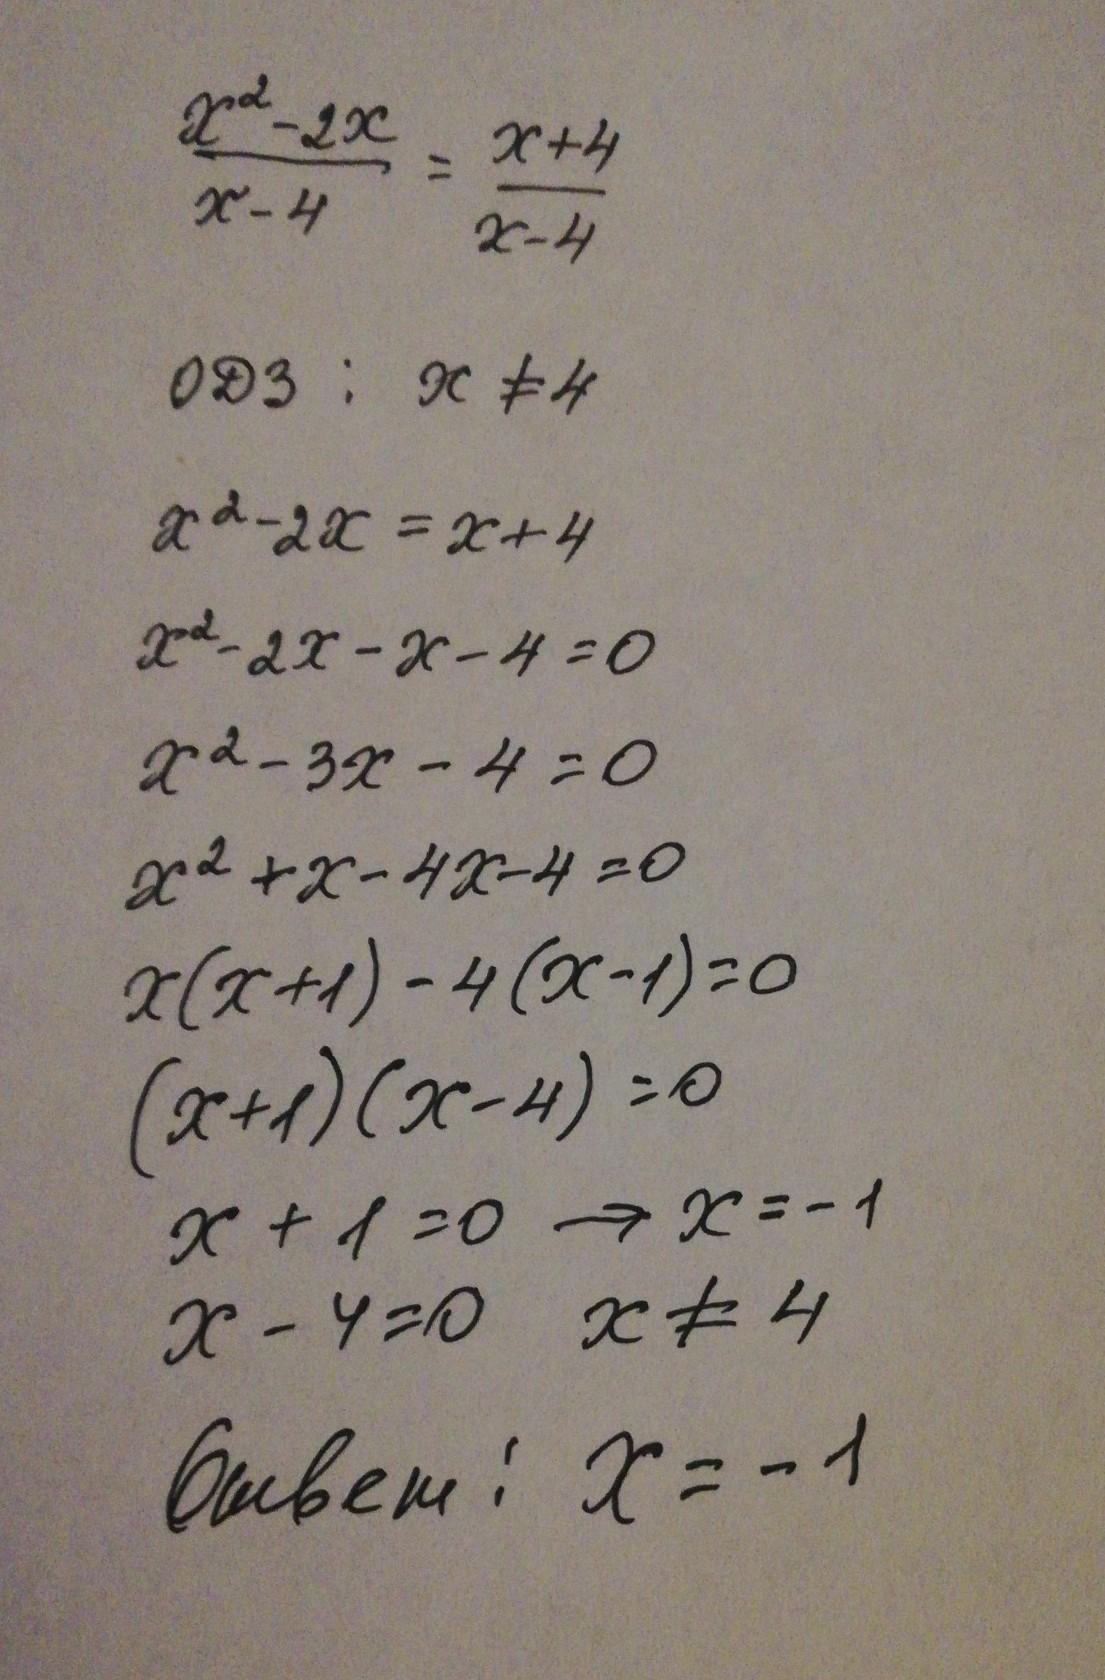 x² - 2x / x - 4 = x + 4 / x - 4
ОДЗ : x ≠ 4
x² - 2x = x + 4
x² - 2x - x - 4 = 0
x² - 3x - 4 = 0
x² + x - 4x - 4 = 0
x(x+1) - 4(x-1) = 0
(x+1)(x-4) = 0
x + 1 = 0 → x = -1
x - 4 = 0 x ≠ 4
Ответ : x = -1